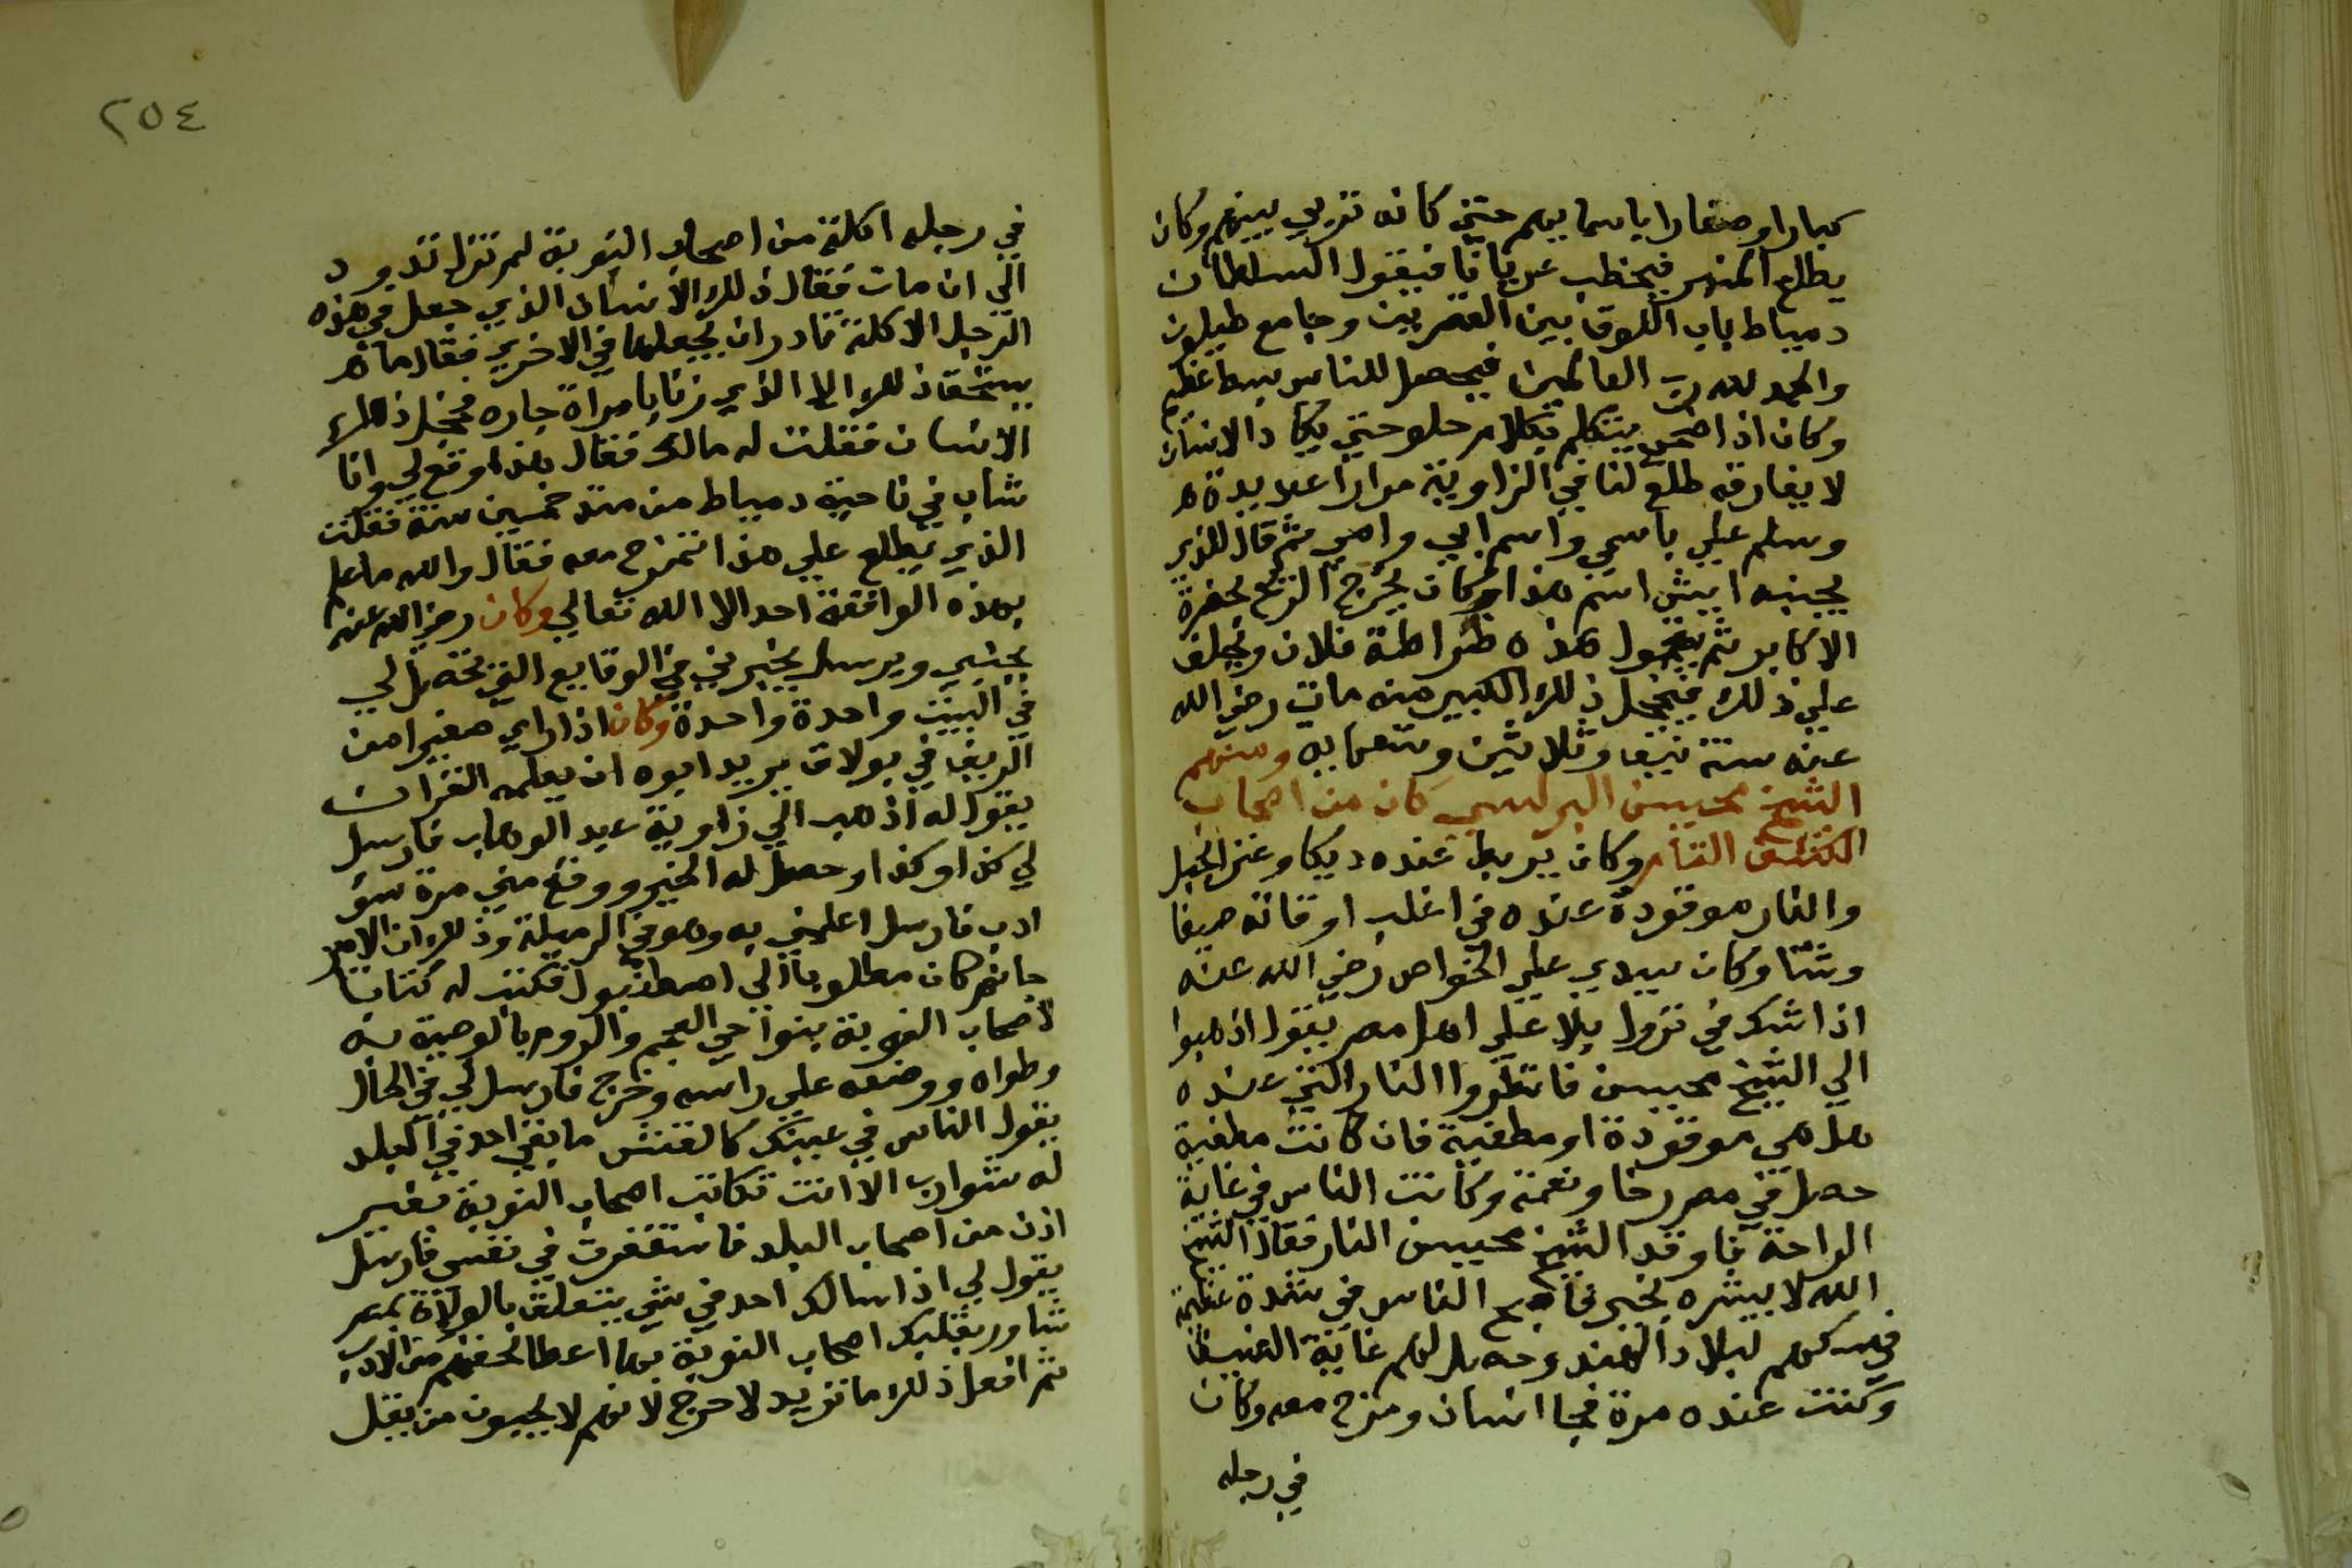 كبارا وصغارا باسمايهم حتي كانه تربي بينهم وكان
يطلع المنبر فيخطب عريانا فيقول السلطان
دمياط باب اللوق بين القصرين وجامع طيلون
والحمد لله رب العالمين فيحصل للناس بسط عظيم
وكان اذا صحى يتكلم بكلام حلو حتي يكاد الانسان
لا يفارقه طلع لنا في الزاوية مرارا عديدة
وسلم علي باسمي واسم ابي وامي ثم قال للذي
بجنبه ايش اسم هذا وكان يخرج الريح بحضرة
الاكابر ثم يقول هذه ضراطة فلان ويحلف
علي ذلك فيخجل ذلك الكبير منه مات رضي الله
عنه سنة نيف وثلاثين وتسعمايه ومنهم
الشيخ محيسن البرلسي كان من اصحاب
الكشف التام وكان يربط عنده ديكا وعنز الجبل
والنار موقودة عنده في اغلب اوقاته صيفا
وشتا وكان سيدي علي الخواص رضي الله عنه
اذا شك في نزول بلا علي اهل مصر يقول اذهبوا
الي الشيخ محيسن فانظروا النار التي عنده
هل هي موقودة او مطفية فان كانت مطفية
حصل في مصر رخا ونعمة وكانت الناس في غاية
الراحة فاوقد الشيخ محيسن النار فقال الشيخ
الله لا يبشره بخير فاصبح الناس في شدة عظيمة
في مسكهم لبلاد الهند وحصل لهم غاية الضيق
وكنت عنده مرة فجا انسان ومزح معه وكان
في رجله
٢٥٤
في رجله اكلة من اصحاب النوبة لم تزل تدود
الي ان مات فقال ذلك الانسان الذي جعل في هذه
الرجل الاكلة قادر ان يجعلها في الاخري فقال ما
يستحق ذلك الا الذي زنا بامراة جاره فخجل ذلك
الانسان فقلت له مالك فقال هذا وقع لي وانا
شاب في ناحية دمياط من منذ خمسين سنة فقلت
الذي يطلع علي هذا تمزح معه فقال والله ما علم
بهذه الواقعة احد الا الله تعالي وكان رضي الله عنه
يحبني ويرسل يخبرني في الوقايع التي تحصل لي
في البيت واحدة واحدة وكان اذا راي صغيرا من
الريف في بولاق يريد ابوه ان يعلمه القران
يقول له اذهب الي زاوية عبد الوهاب فارسل
لي كذا وكذا وحصل له الخير ووقع مني مرة سو
ادب فارسل اعلمني به وهو في الرميلة وذلك ان الامير
جانم كان مطلوبا الي اصطنبول فكتبت له كتابا
لاصحاب النوبة بنواحي العجم والروم بالوصية به
وطواه ووضعه علي راسه وخرج فارسل لي في الحال
يقول الناس في عينك كالقش ما بقي احد في البلد
له شوارب الا انت تكاتب اصحاب النوبة بغير
اذن من اصحاب البلد فاستغفرت في نفسي فارسل
يقول لي اذا سالك احد في شي يتعلق بالولاة بمصر
شاور بقلبك اصحاب النوبة بها اعطا لحقهم من الادب
ثم افعل ذلك ما تريد لا حرج لانهم لا يحبون من يقل